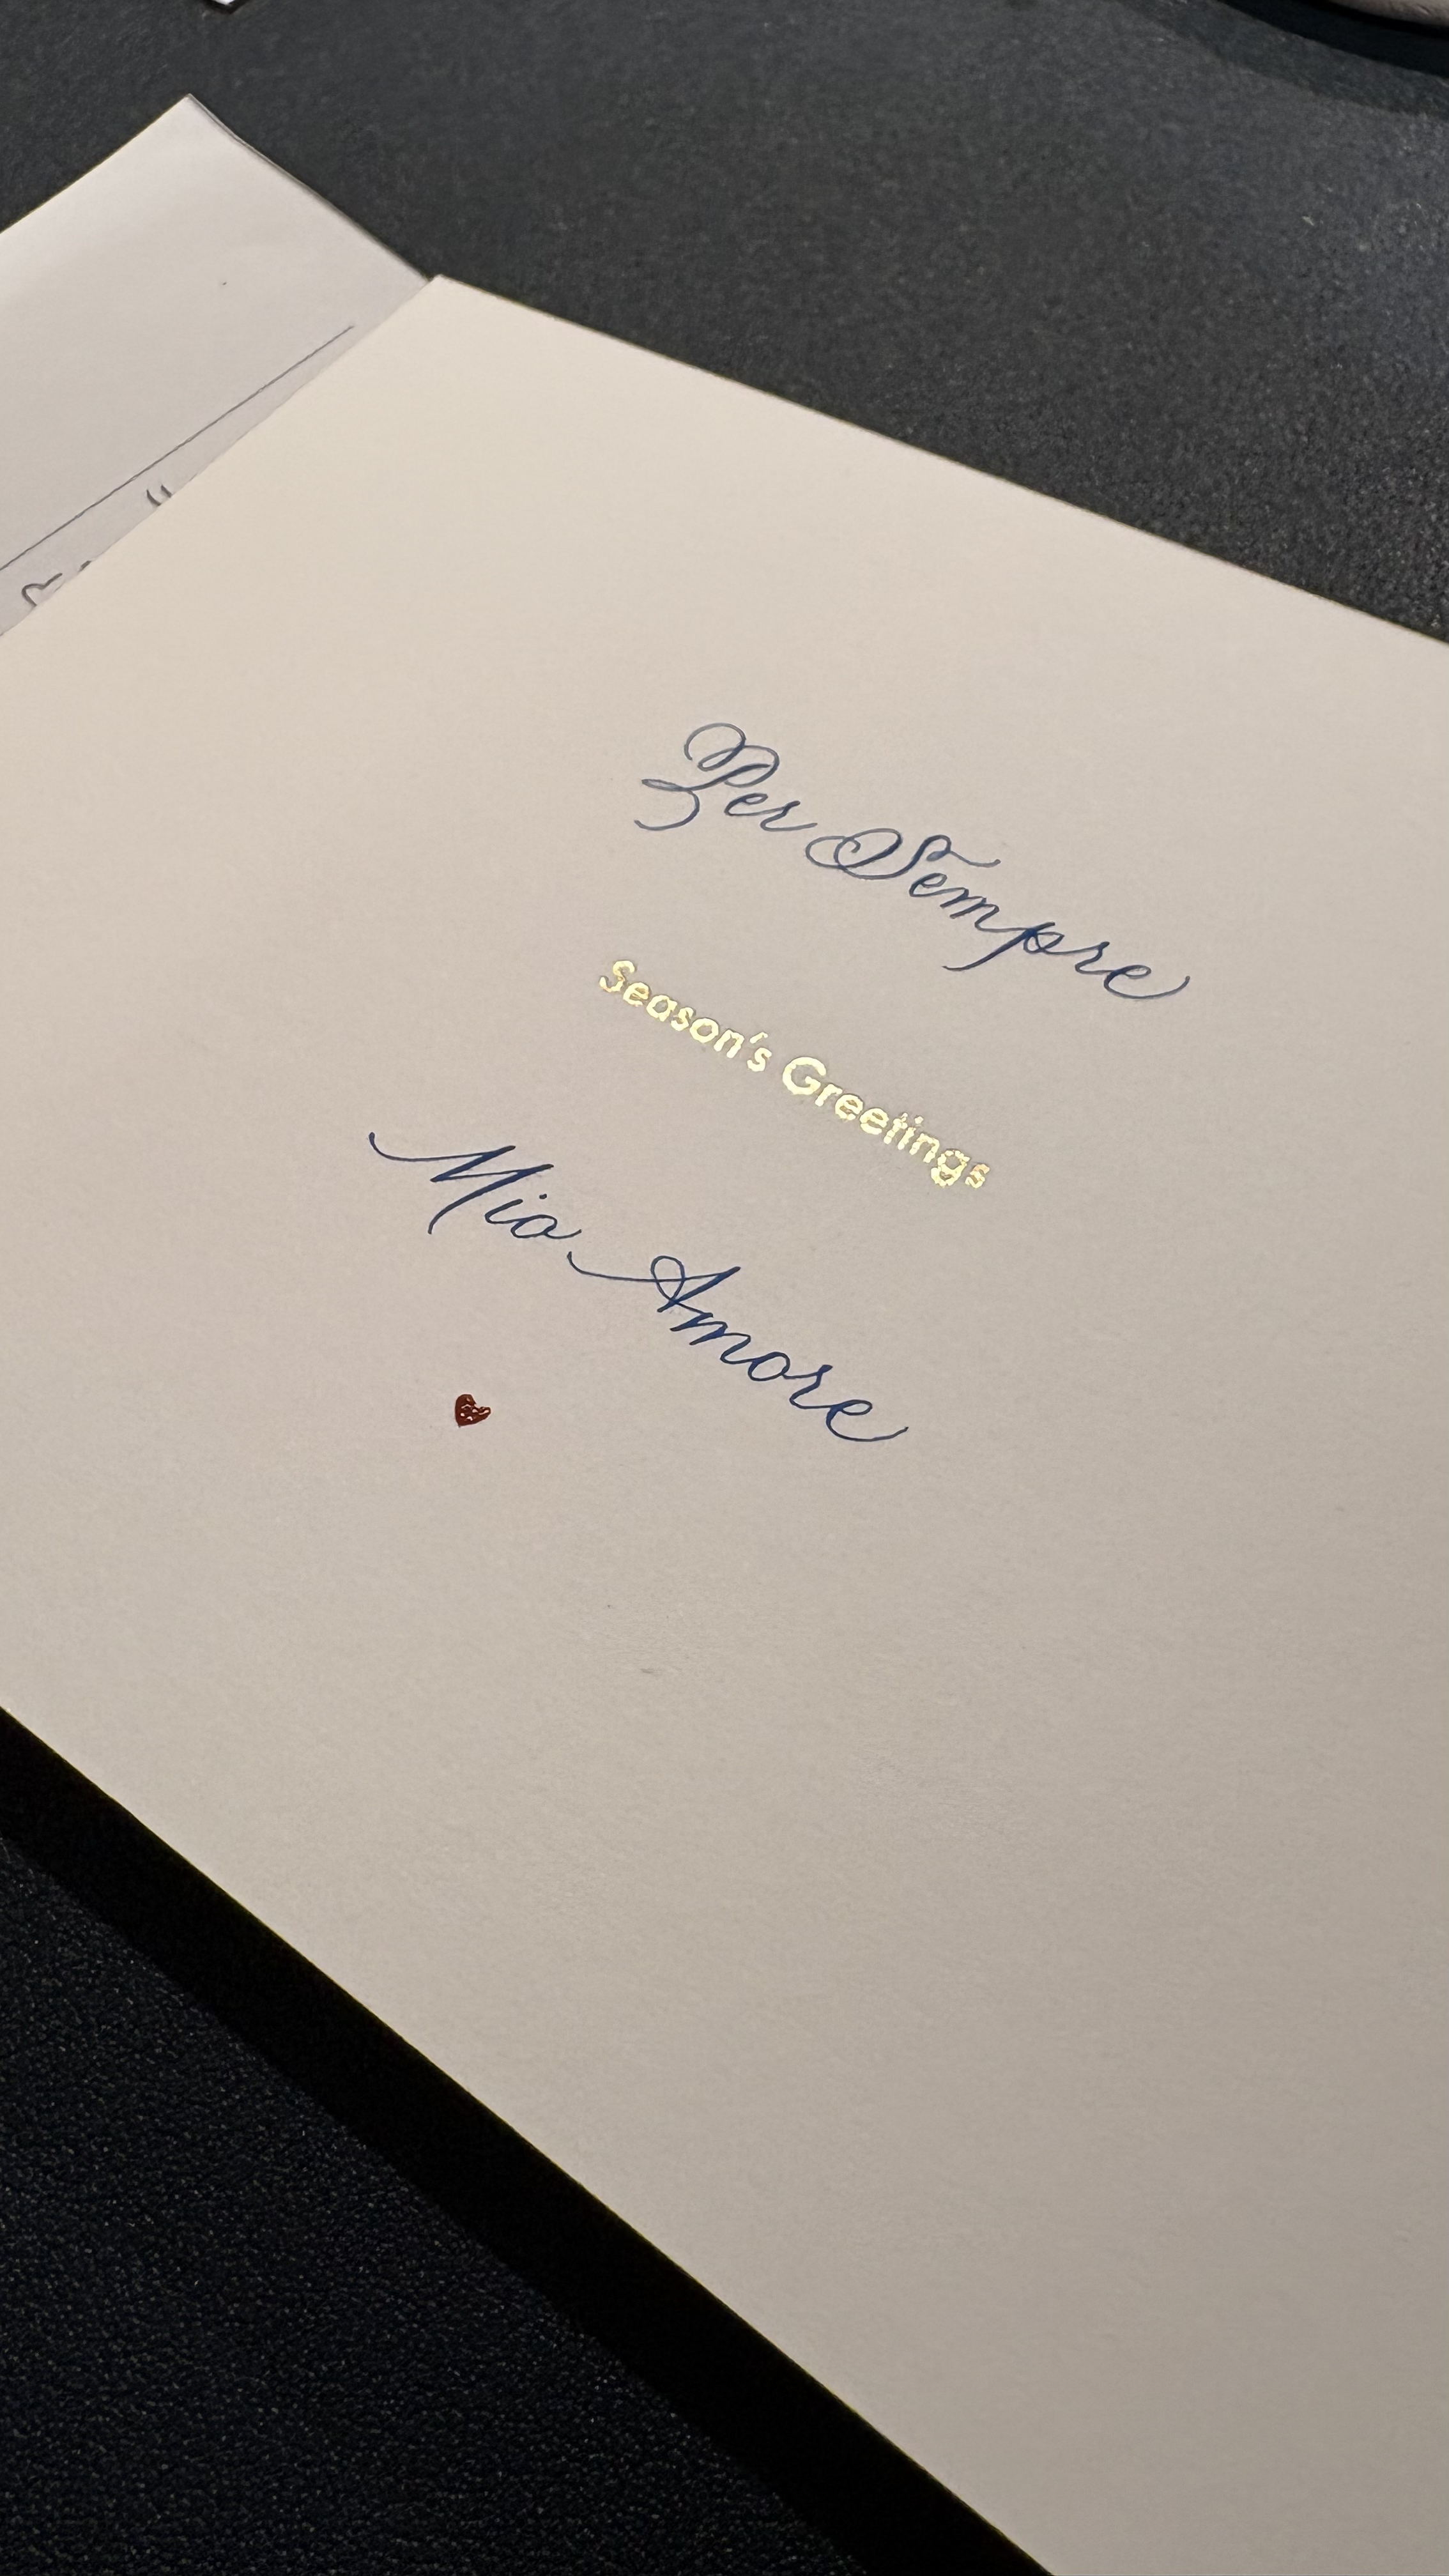 Per Sempre
Season's Greetings
Mio Amore